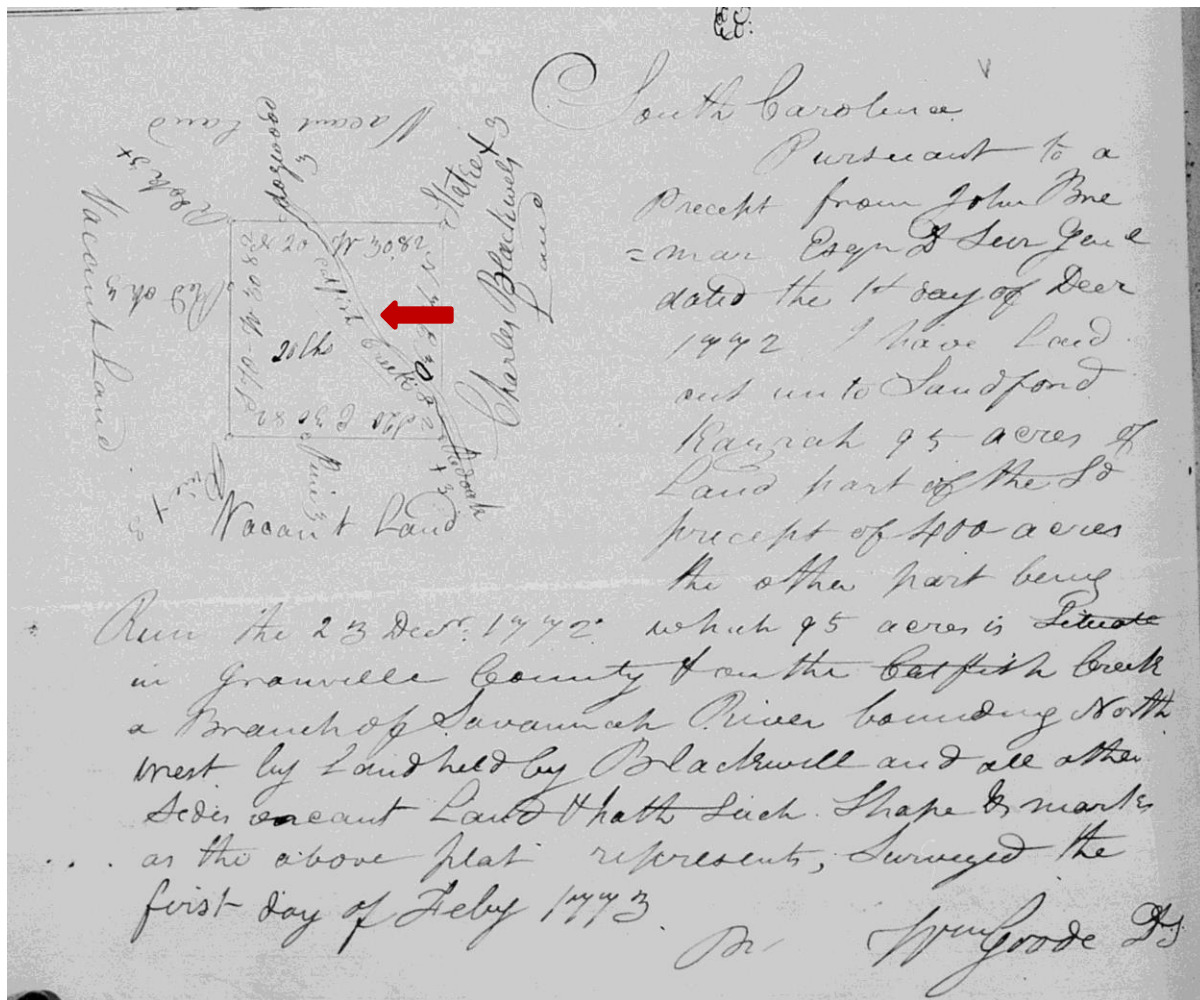 South Carolina
Pursuant to a
Precept from John Bre
=mar Esqr D Sur Genl
dated the 1st day of Decr
1772 I have Laid
out unto Sandford
95 acres of
Land part of the Sd
precept of 400 acres
the other part being
Run the 23 Decr. 1772 which 95 acres is Situate
in Granville County & on the Catfish Creek
a Branch of Savannah River bounding North
west by Land held by Blackwell and all other
Sides vacant Land & hath Such Shape & marks
as the above plat represents, Surveyed the
first day of Feby 1773
Pr Wm Goode DS
Vacant Land
Stake X 3
Charles Blackwells
Land
Vacant Land
Red oak 3
Catfish
Creek
Pine 3
Vacant Land